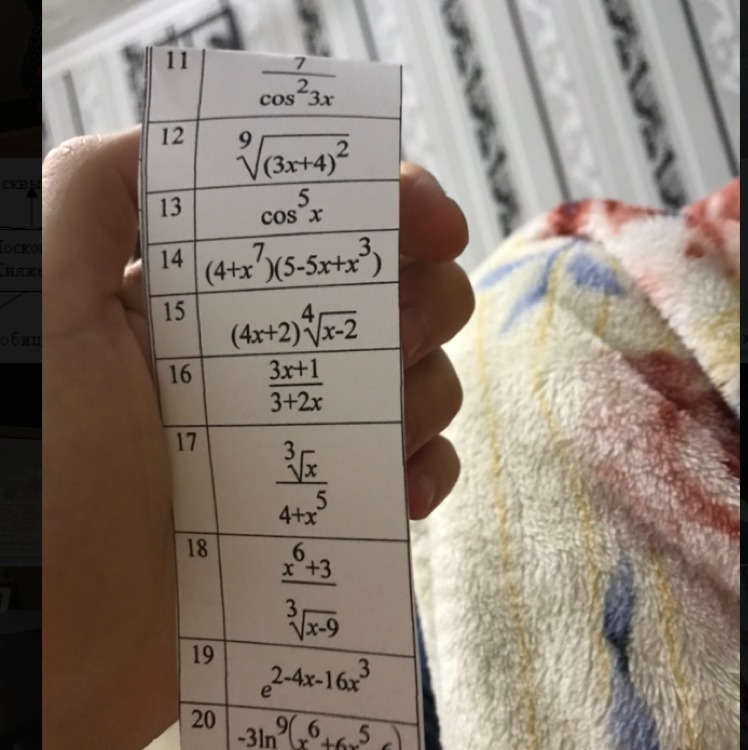 11 7/cos²3x
12 ⁹√(3x+4)²
13 cos⁵x
14 (4+x⁷)(5-5x+x³)
15 (4x+2)⁴√x-2
16 3x+1/3+2x
17 ³√x/4+x⁵
18 x⁶+3/³√x-9
19 e^2-4x-16x³
20 -3ln⁹(x⁶+6x⁵